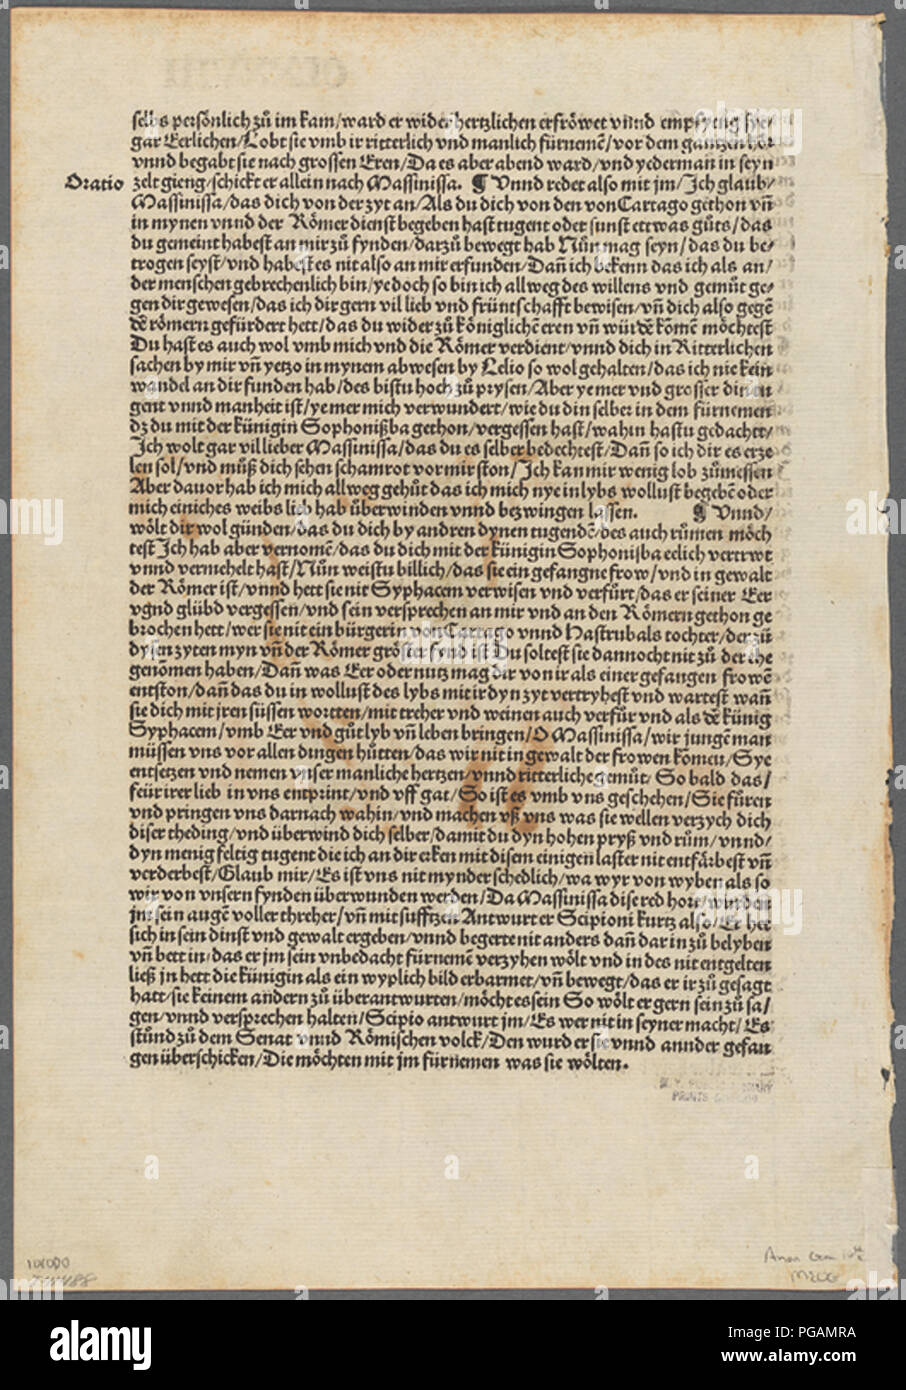 selbs persönlich zů im kam/ward er wider hertzlichen erfröwet vnnd empfyeng sye
gar Eerlichen/Lobt sie vmb ir ritterlich vnd manlich fürnemē/vor dem gantzen hör
vnnd begabt sie nach grossen Eren/Da es aber abend ward/vnd yederman in seyn
Oratio zelt gieng/schickt er allein nach Massinissa. ¶ Vnnd redet also mit jm/Ich glaub/
Massinissa/das dich von der zyt an/Als du dich von den von Cartago gethon vñ
in mynen vnnd der Römer dienst begeben hast tugent oder sunst ettwas gůts/das
du gemeint habest an mir zů fynden/darzů bewegt hab Nůn mag seyn/das du be/
trogen seyst/vnd habest es nit also an mir erfunden/Dañ ich bekenn das ich als an/
der menschen gebrechenlich bin/ye doch so bin ich allweg des willens vnd gemüt ge/
gen dir gewesen/das ich dir gern vil lieb vnd früntschafft bewisen/vñ dich also gegē
dē römern gefürdert hett/das du wider zů königlichē eren vñ würdē komē möchtest
Du hast es auch wol vmb mich vnd die Römer verdient/vnnd dich in Ritterlichen
sachen by mir vñ yetzo in mynem abwesen by Lelio so wol gehalten/das ich nie kein
wandel an dir funden hab/des bistu hoch zů prysen/Aber ye mer vnd grosser din tu
gent vnnd manheit ist/ye mer mich verwundert/wie du din selber in dem fürnemen
dz du mit der künigin Sophonißba gethon/vergessen hast/wahin hastu gedacht/
Ich wolt gar vil lieber Massinissa/das du es selber bedechtest/Dañ so ich dir es erze
len sol/vnd můß dich sehen schamrot vor mir ston/Ich kan mir wenig lob zůmessen
Aber dauor hab ich mich allweg gehůt das ich mich nye in lybs wollust begebē oder
mich einiches weibs lieb hab überwinden vnnd bezwingen lassen. ¶ Vnnd/
wölt dir wol günden/das du dich by andren dynen tugendē/des auch rümen möch
test Ich hab aber vernomē/das du dich mit der künigin Sophonißba eelich vertrwt
vnnd vermehelt hast/Nůn weistu billich/das sie ein gefangne frow/vnd in gewalt
der Römer ist/vnnd hett sie nit Syphacem verwisen vnd verfürt/das er seiner Eer
vñd glübd vergessen/vnd sein versprechen an mir vnd an den Römern gethon ge
brochen hett/wer sie nit ein bürgerin von Cartago vnnd Hastrubals tochter/der zů
dysen zyten myn vñ der Römer gröster fynd ist Du soltest sie dannocht nit zů der ehe
genōmen haben/Dañ was Eer oder nutz mag dir von ir als einer gefangen frowē
entston/dañ das du in wollust des lybs mit ir dyn zyt vertryhest vnd wartest wañ
sie dich mit jren süssen wortten/mit treher vnd weinen auch verfür vnd als dē künig
Syphacem/vmb Eer vnd gůt lyb vñ leben bringen/O Massinissa/wir jungē man
müssen vns vor allen dingen hütten/das wir nit in gewalt der frowen komen/Sye
entsetzen vnd nemen vnser manliche hertzen/vnnd ritterliche gemüt/So bald das/
feür irer lieb in vns entprint/vnd vff gat/So ist es vmb vns geschehen/Sie füren
vnd pringen vns darnach wahin/vnd machen vß vns was sie wellen verzych dich
diser theding/vnd überwind dich selber/damit du dyn hohen pryß vnd rům/vnnd/
dyn menig feltig tugent die ich an dir erken mit disem einigen laster nit entfärbest vñ
verderbest/Glaub mir/Es ist vns nit mynder schedlich/wa wyr von wyben als so
wir von vnsern fynden überwunden werden/Da Massinissa dise red hort/wurden
jm sein augē voller threher/vñ mit sufftzen Antwurt er Scipioni kurtz also/Er het
sich in sein dinst vnd gewalt ergeben/vnnd begerte nit anders dañ dar in zů belyben
vñ bett in/das er jm sein vnbedacht fürnemē verzyhen wölt vnd in des nit entgelten
ließ jn hett die künigin als ein wyplich bild erbarmet/vñ bewegt/das er ir zů gesagt
hatt/sie keinem andern zů überantwurten/möcht es sein So wölt er gern sein zů sa/
gen/vnnd versprechen halten/Scipio antwurt jm/Es wer nit in seyner macht/Es
stünd zů dem Senat vnnd Römischen volck/Den wurd er sie vnnd annder gefan
gen überschicken/Die möchten mit jm fürnemen was sie wölten.
PRINTS
101000
MEZG
alamy
Image ID: PGAMRA
www.alamy.com